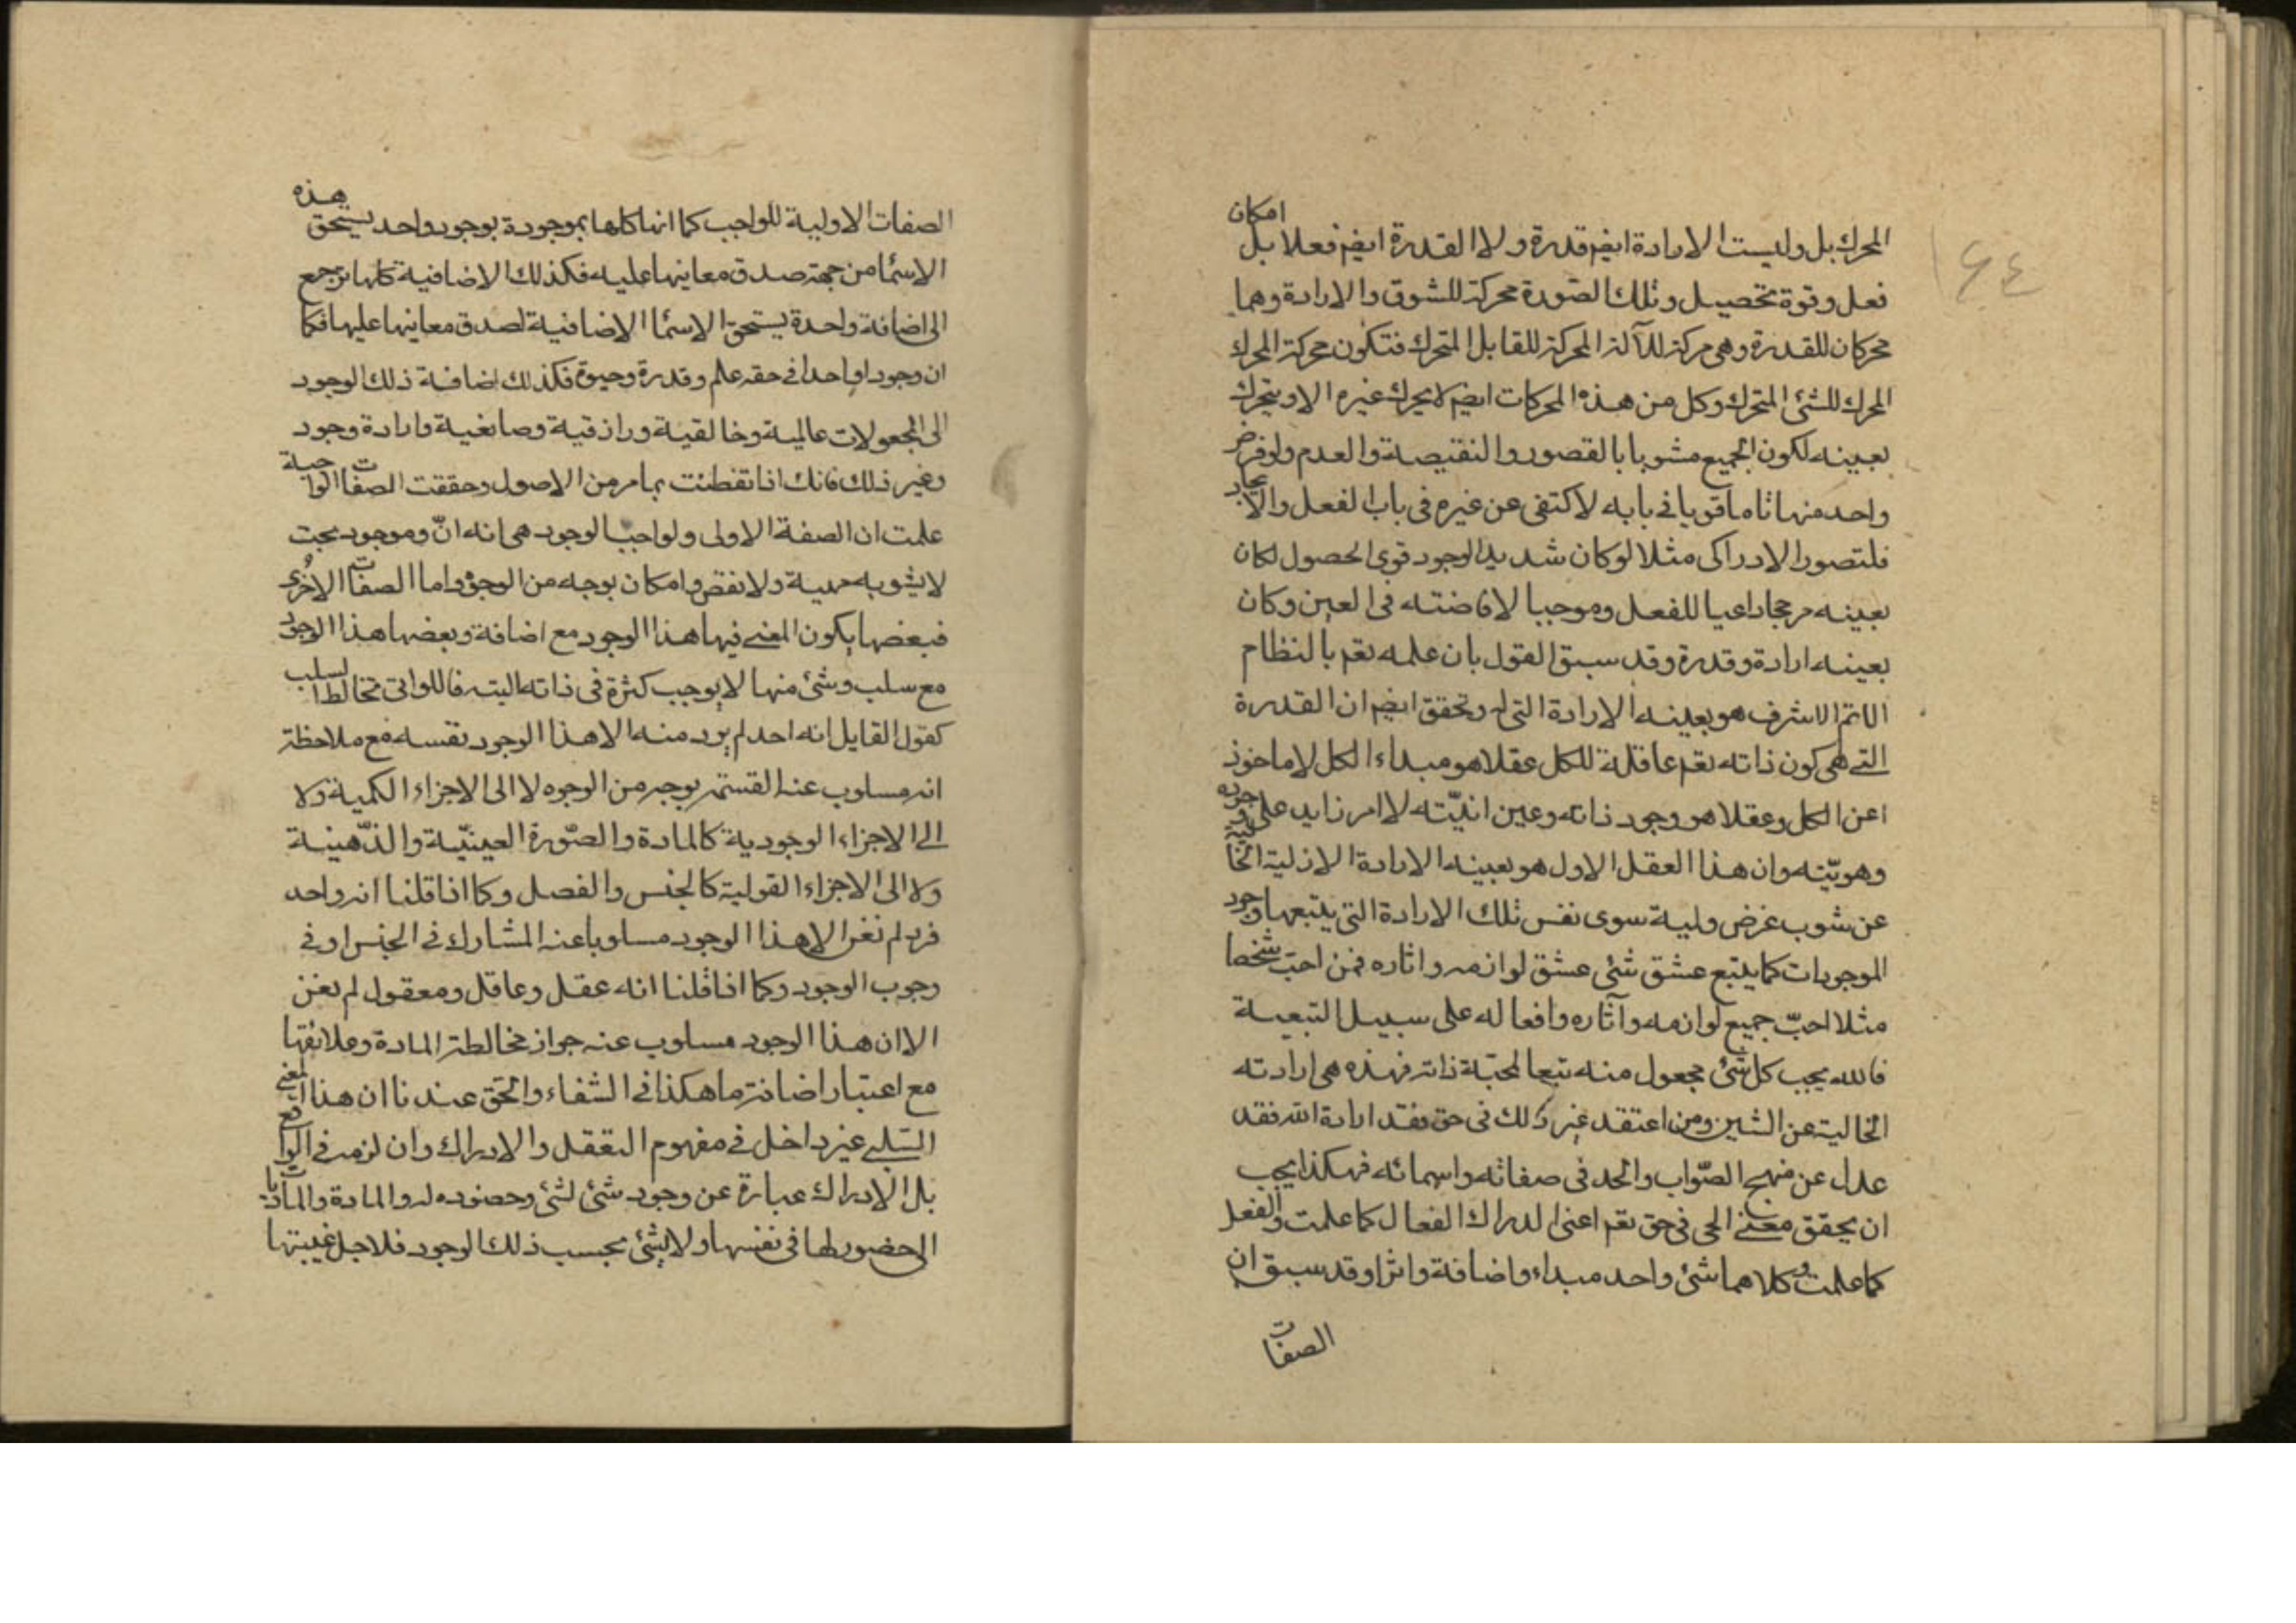 ٤٤
المحرك بل وليست الارادة ايضم قدرة ولا القدرة ايضم فعلا بل امكان
فعل وقوة تحصيل وتلك الصّورة محركة للشوق والارادة وهما
محركان للقدرة وهى محركة للآلة المحركة للقابل المتحرك فتكون محركة المحرك
المحرك للشئ المتحرك وكل من هذه المحركات ايضم لا يحرك غيره الا ويتحرك
بعينه لكون الجميع مشوبا بالقصور والنقيصة والعدم ولو فرض
واحد منها تاما قويا فى بابه لاكتفى عن غيره فى باب الفعل والايجاد
فلتصور الادراكى مثلا لو كان شديد الوجود قوى الحصول لكان
بعينه مرجحا داعيا للفعل وموجبا لافاضته فى العين وكان
بعينه ارادة وقدرة وقد سبق القول بان علمه تعم بالنظام
الاتم الاشرف هو بعينه الارادة التى له وتحقق ايضم ان القدرة
التى هى كون ذاته تعم عاقلة للكل عقلا هو مبداء الكل لا ماخوذ
اعن الكل وعقلا هو وجود ذاته وعين انيّته لا امر زايد على وجوده
وهويّته وان هذا العقل الاول هو بعينه الارادة الازلية الخالية
عن شوب غرض ولمية سوى نفس تلك الارادة التى يتبعها وجود
الموجودات كما يتبع عشق شئ عشق لوازمه واثاره فمن احبّ شخصا
مثلا احبّ جميع لوازمه وآثاره وافعاله على سبيل التبعية
فالله يحب كل شئ مجعول منه تبعا لمحبّة ذاته فهذه هى ارادته
الخالية عن الشين ومن اعتقد غير ذلك فى حق ارادة الله فقد
عدل عن منهج الصّواب والحد فى صفاته واسمائه فهكذا يجب
ان يحقق معنى الحى فى حق تعم اعنى الدراك الفعال كما علمت والفعل
كما علمت وكلاهما شئ واحد مبداء واضافة واثرا وقد سبق ان
الصفات
الصفات الاولية للواجب كما انها كلها بموجودة بوجود واحد يستحق هذه
الاسمٓا من جهة صدق معاينها عليه فكذلك الاضافية كلها ترجع
الى اضافة واحدة يستحق الاسمٓا الاضافية لصدق معانيها عليها فكما
ان وجودا واحدا فى حقه علم وقدرة وحيوة فكذلك اضافة ذلك الوجود
الى المجعولات عالمية وخالقية ورازقية وصانعية وارادة وجود
وغير ذلك فانك اذا تفطنت بما مر من الاصول وحققت الصفات الواجبية
علمت ان الصفة الاولى ولواجب الوجود هى انه انّ وموجود بحت
لا يشوبه مهية ولا نقص وامكان بوجه من الوجوه واما الصفات الاخرى
فبعضها يكون المعنى فيها هذا الوجود مع اضافة وبعضها هذا الوجود
مع سلب وشئ منها لا يوجب كثرة فى ذاته البته فاللواتى تخالط السلب
كقول القايل انه احد لم يرد منه الا هذا الوجود نفسه مع ملاحظة
انه مسلوب عنه القسمة بوجه من الوجوه لا الى الاجزاء الكمية ولا
الى الاجزاء الوجودية كالمادة والصّورة العينيّة والذّهنية
ولا الى الاجزاء القولية كالجنس والفصل وكما اذا قلنا انه واحد
فرد لم نغن الا هذا الوجود مسلوبا عنه المشارك فى الجنس او فى
وجوب الوجود وكما اذا قلنا انه عقل وعاقل ومعقول لم نغن
الا ان هذا الوجود مسلوب عنه جواز مخالطة المادة وعلائقها
مع اعتبار اضافة ما هكذا فى الشفاء والحق عندنا ان هذا المعنى
السّلبى غير داخل فى مفهوم التعقل والادراك وان لزمه فى الواقع
بل الادراك عبارة عن وجود شئ لشئ وحضوره له والمادة والماديات
لا حضور لها فى نفسها ولا لشئ بحسب ذلك الوجود فلاجل غيبتها